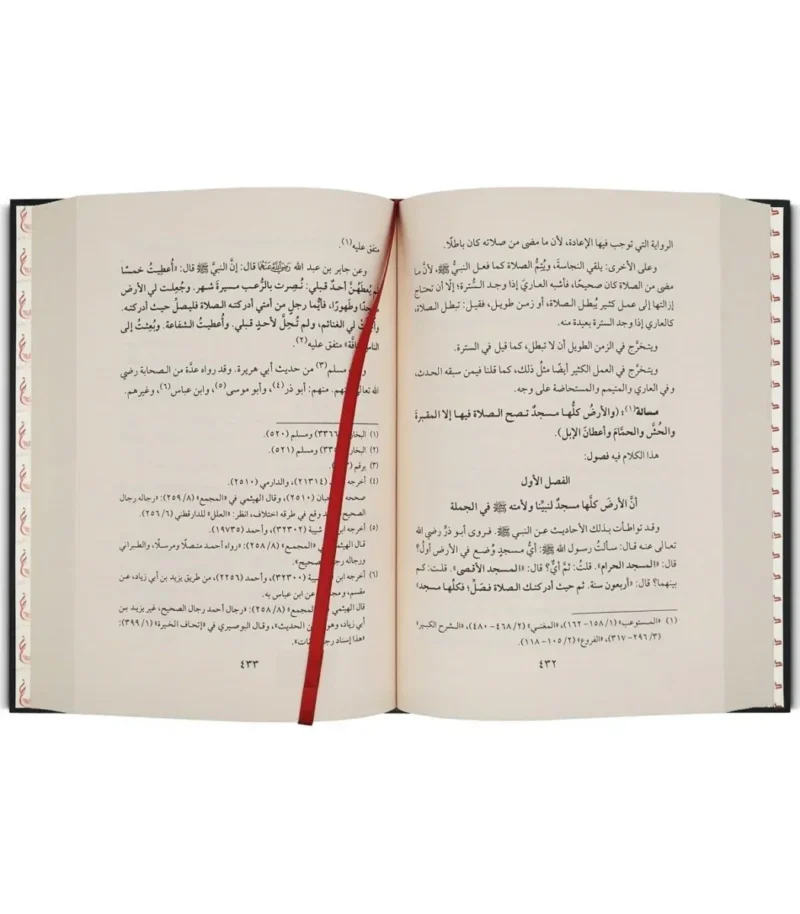 الرواية التي توجب فيها الإعادة، لأن ما مضى من صلاته كان باطلًا.
وعلى الأخرى: يلقي النجاسة، ويُتِمُّ الصلاة كما فعل النبيُّ ﷺ، لأنَّ ما
مضى من الصلاة كان صحيحًا، فأشبه العاريَ إذا وجد السُّترة؛ إلَّا أن تحتاج
إزالتها إلى عمل كثير يُبطل الصلاة، أو زمن طويل، فقيل: تبطل الصلاة،
كالعاري إذا وجد السترة بعيدة منه.
ويتخرَّج في الزمن الطويل أن لا تبطل، كما قيل في السترة.
ويتخرَّج في العمل الكثير أيضًا مثلُ ذلك، كما قلنا فيمن سبقه الحدث،
وفي العاري والمتيمم والمستحاضة على وجه.
مسألة(١): (والأرضُ كلُّها مسجدٌ تصح الصلاة فيها إلا المقبرةَ
والحُشَّ والحمَّامَ وأعطانَ الإبل).
هذا الكلام فيه فصول:
الفصل الأول
أنَّ الأرضَ كلَّها مسجدٌ لنبيِّنا ولأمته ﷺ في الجملة
وقد تواطأت بذلك الأحاديث عن النبي ﷺ. فروى أبو ذرٍّ رضي الله
تعالى عنه قال: سألتُ رسول الله ﷺ: أيُّ مسجدٍ وُضع في الأرض أولُ؟
قال: «المسجد الحرام». قلتُ: ثمَّ أيٌّ؟ قال: «المسجد الأقصى». قلت: كم
بينهما؟ قال: «أربعون سنة. ثم حيث أدركتك الصلاة فصَلِّ؛ فكلُّها مسجد»
(١) «المستوعب» (١/ ١٥٨- ١٦٢)، «المغني» (٢/ ٤٦٨- ٤٨٠)، «الشرح الكبير»
(٣/ ٢٩٦- ٣١٧)، «الفروع» (٢/ ١٠٥- ١١٨).
٤٣٢
متفق عليه(١).
وعن جابر بن عبد الله رَضِيَ اللَّهُ عَنْهُمَا قال: إنَّ النبيَّ ﷺ قال: «أُعطِيتُ خمسًا
لم يُعطَهُنَّ أحدٌ قبلي: نُصِرت بالرُّعب مسيرةَ شهر. وجُعِلت لي الأرض
وطَهورًا، فأيُّما رجلٍ من أمتي أدركته الصلاة فليصلِّ حيث أدركته.
لي الغنائم، ولم تُحِلَّ لأحدٍ قبلي. وأُعطيتُ الشفاعة. وبُعِثتُ إلى
الناس متفق عليه(٢).
مسلم(٣) من حديث أبي هريرة. وقد رواه عدَّة من الصحابة رضي
الله منهم: أبو ذر(٤)، وأبو موسى(٥)، وابن عباس(٦)، وغيرهم.
(١) ومسلم (٥٢٠).
(٢) ومسلم (٥٢١).
(٣) برقم
(٤) أخرجه (٢١٣١٤)، والدارمي (٢٥١٠).
صححه (٢٥١٠)، وقال الهيثمي في «المجمع» (٨/ ٢٥٩): «رجاله رجال
الصحيح وقع في طرقه اختلاف، انظر: «العلل» للدارقطني (٦/ ٢٥٦).
(٥) أخرجه ابن شيبة (٣٢٣٠٢)، وأحمد (١٩٧٣٥).
قال الهيثمي في «المجمع» (٨/ ٢٥٨): «رواه أحمد متصلًا ومرسلًا، والطبراني
ورجاله الصحيح».
(٦) أخرجه ابن شيبة (٣٢٣٠٠)، وأحمد (٢٢٥٦)، من طريق يزيد بن أبي زياد، عن
مقسم، عن ابن عباس به.
قال الهيثمي «المجمع» (٨/ ٢٥٨): «رجال أحمد رجال الصحيح، غير يزيد بن
أبي زياد، وهو الحديث»، وقال البوصيري في «إتحاف الخيرة» (١/ ٣٩٩):
«هذا إسناد
٤٣٣